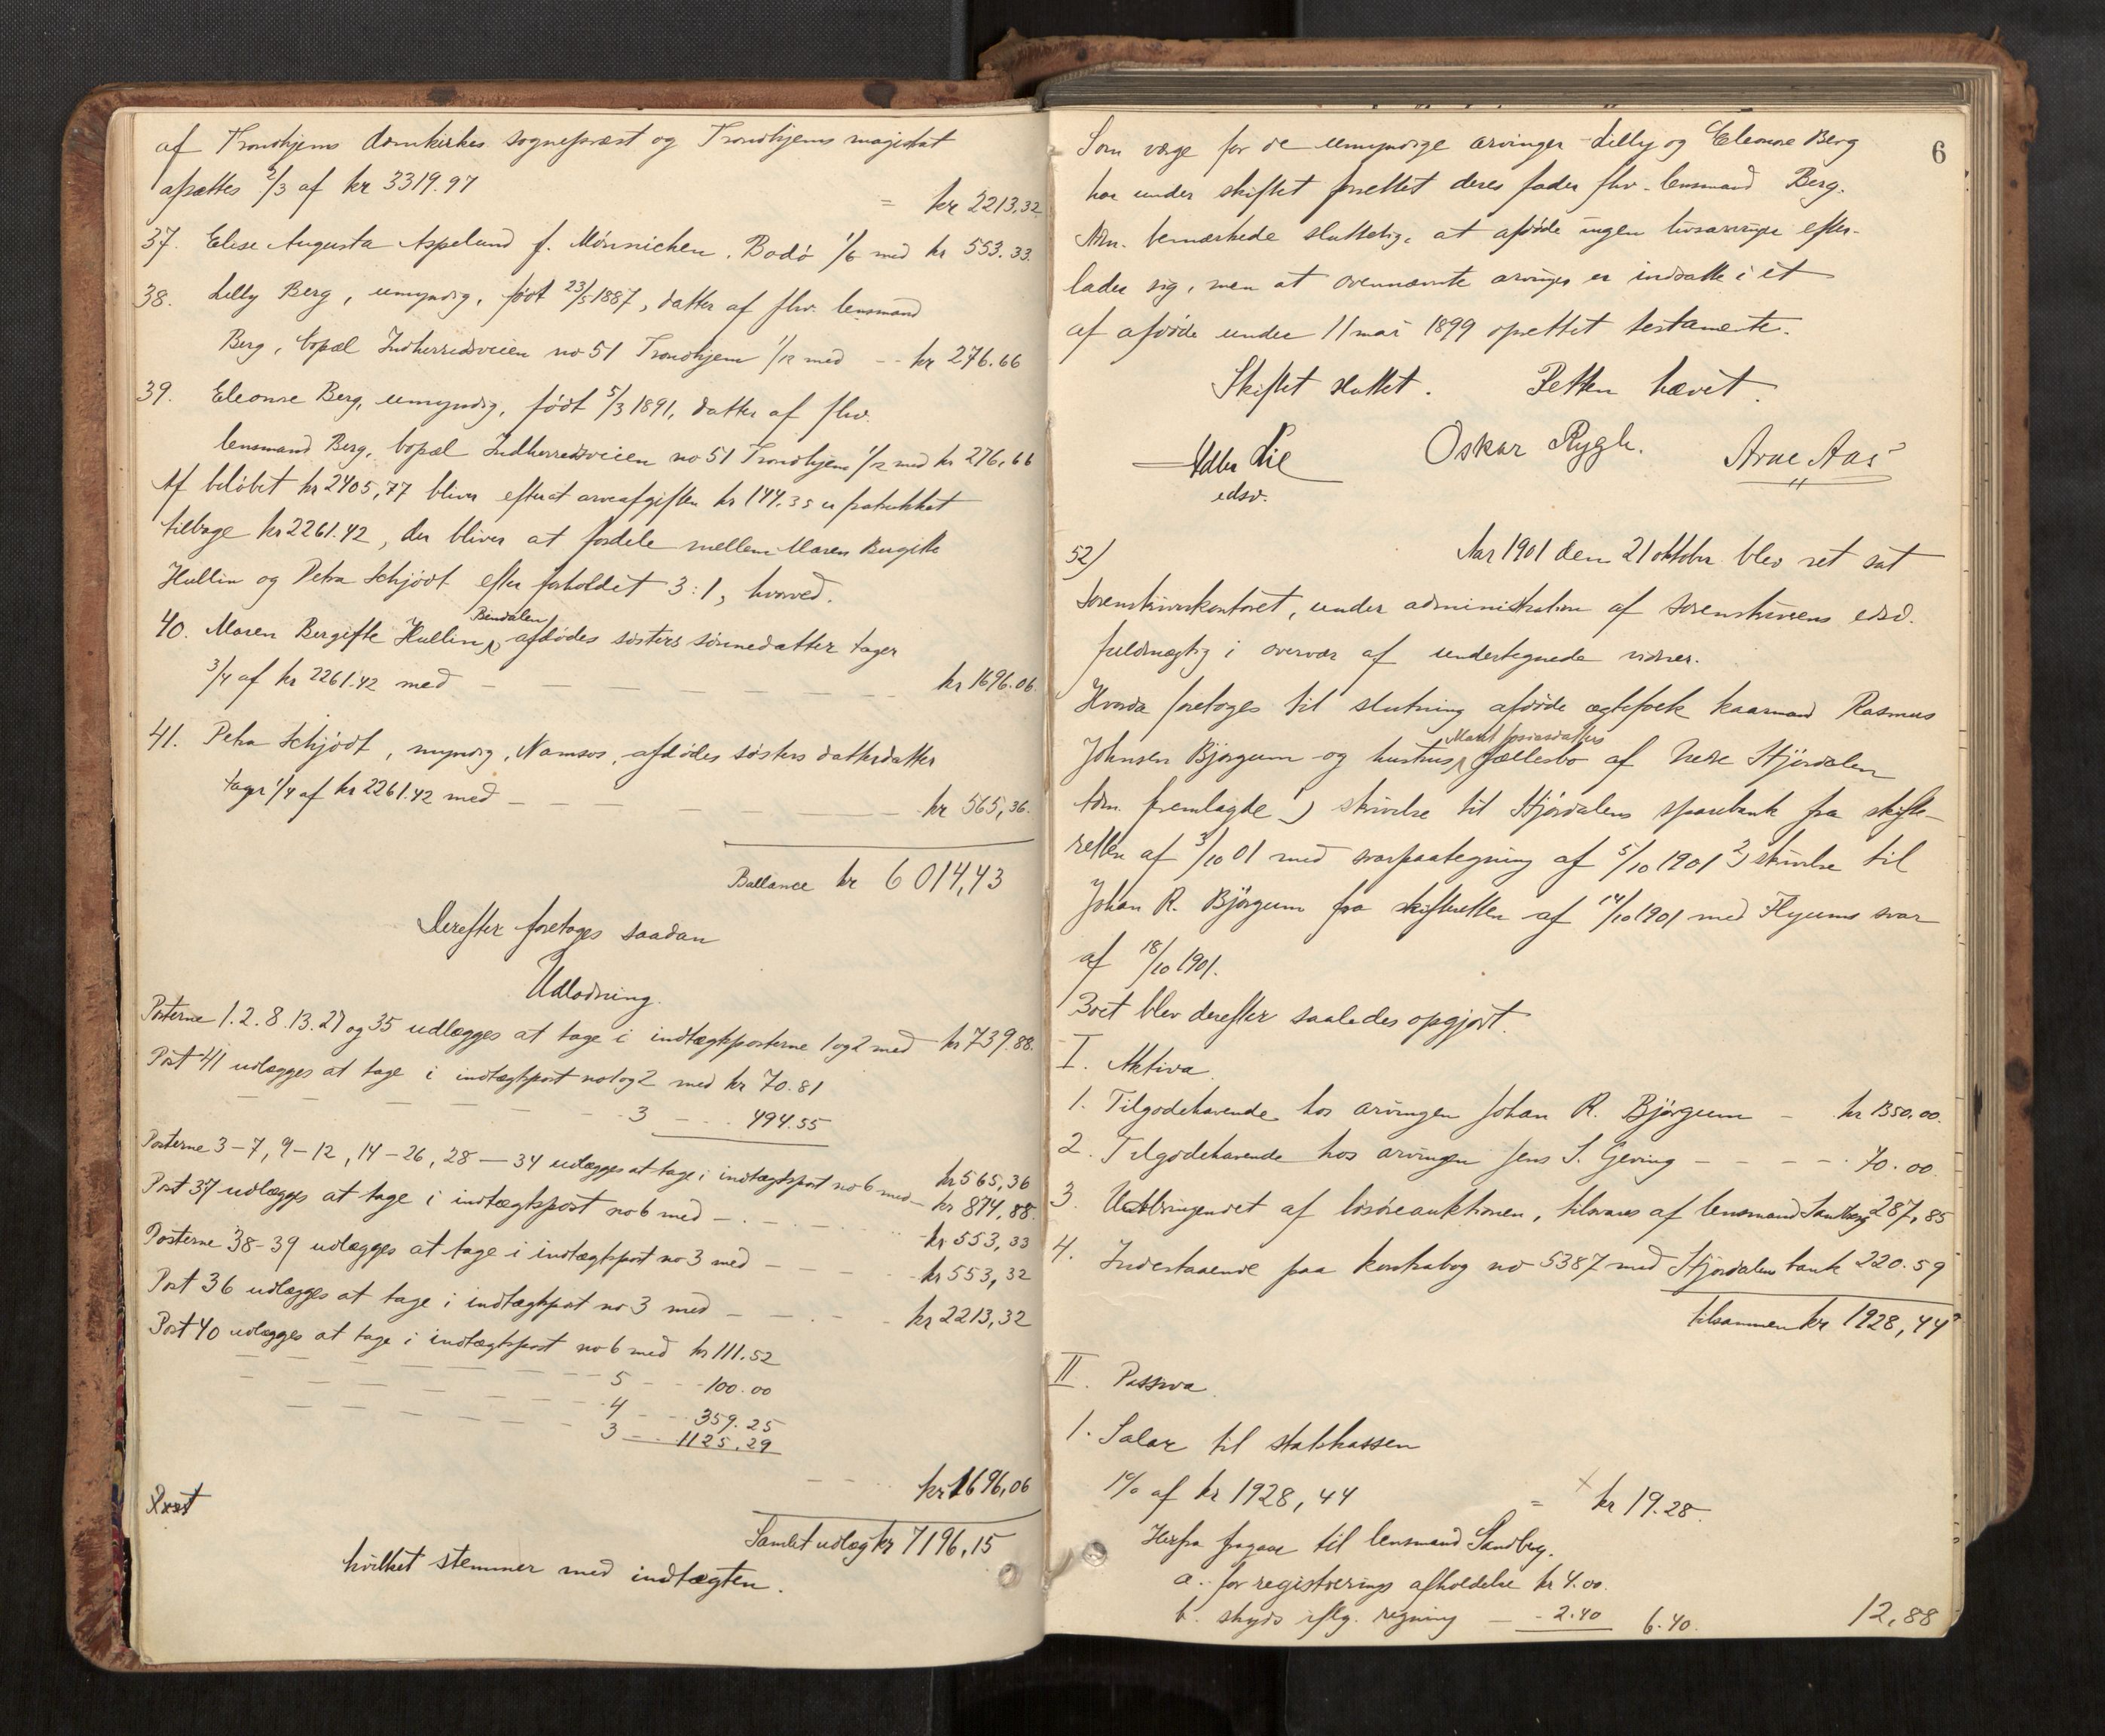 af Trondhjems domkirkes sognepræst og Trondhjems magistrat
afsættes 2/3 af kr 3319.97 = kr 2213,32
37. Elise Augusta Aspelund f. Mönnichen, Bodö 1/6 med kr 553.33.
38. Lilly Berg, umyndig, födt 23/5 1887, datter af fhv. lensmand
Berg, bopæl Indherredsveien no 51 Trondhjem 1/12 med -- kr 276.66
39. Eleonore Berg, umyndig, födt 5/3 1891, datter af fhv.
lensmand Berg, bopæl Indherredsveien no 51 Trondhjem 1/12 med kr 276,66
Af belöbet kr 2405,77 bliver efterat arveafgiften kr 144.35 er fratrukket
tilbage kr 2261.42, der bliver at fordele mellem Maren Bergitte
Hullin og Petra Schjödt efter forholdet 3:1, hvorved.
40. Maren Bergitte Hullin, Bindalen, afdödes sösters sönnedatter tager
3/4 af kr 2261.42 med - - - kr 1696.06.
41. Petra Schjödt, myndig, Namsos, afdödes sösters datterdatter
tager 1/4 af kr 2261.42 med - - - kr 565,36.
Ballance kr 6014,43
Derefter foretoges saadan
Udlodning.
Posterne 1.2.8.13.27 og 35 udlægges at tage i indtægtsposterne 1 og 2 med kr 739.88.
Post 41 udlægges at tage i indtægtspost no 1 og 2 med kr 70.81
- - - 3 - - 494.55
kr 565,36
Posterne 3-7, 9-12, 14-26, 28-34 udlægges at tage i indtægtspost no 6 med kr 874,88.
Post 37 udlægges at tage i indtægtspost no 6 med - - - kr 553,33
Posterne 38-39 udlægges at tage i indtægtspost no 3 med - - - kr 553,32
Post 36 udlægges at tage i indtægtspost no 3 med - - - kr 2213,32
Post 40 udlægges at tage i indtægtspost no 6 med kr 111.52
- - - 5 - - 100.00
- - - 4 - - 359.25
- - - 3 - - 1125.29
- - kr 1696,06
Post
Samlet udlæg kr 7196,15
hvilket stemmer med indtægten.
6
Som værge for de umyndige arvinger Lilly og Eleonore Berg
har under skiftet forrettet deres fader fhv. lensmand Berg.
Adm. bemærkede sluttelig, at afdöde ingen livsarvinger efter-
lader sig, men at ovennævnte arvinger er indsatte i et
af afdöde under 11 mai 1899 oprettet testamente.
Skiftet sluttet. Retten hævet.
Lie Oskar Rygh. Arne Aas
edsv.
52) Aar 1901 den 21 oktober blev ret sat
Sorenskriverkontoret, under administration af sorenskriverens edsv.
fuldmægtig i overvær af undertegnede vidner.
Hvorda foretoges til slutning afdöde ægtefolk kaarmand Rasmus
Johnsen Björgum og hustrus Marit fællesbo af Nedre Stjördalen
Adm. fremlagde 1) skrivelse til Stjördalens sparebank fra skifte-
retten af 3/10 01 med svarpaategning af 5/10 1901 2) skrivelse til
Johan R. Björgum fra skifteretten af 14/10 1901 med svar
af 18/10 1901.
Boet blev derefter saaledes opgjort.
I. Aktiva.
1. Tilgodehavende hos arvingen Johan R. Björgum - kr 1350.00.
2. Tilgodehavende hos arvingen Jens J. Geving - - - - 70.00.
3. Udbringendet af lösöreauktionen, tilsvares af lensmand Sandberg 287,85
4. Indestaaende paa kontrabog no 5387 med Stjördalens bank 220.59
tilsammen kr 1928,44
II. Passiva.
1. Salær til statskassen
1% af kr 1928,44 = kr 19.28.
Herfra fragaar til lensmand Sandberg.
a. for registrerings afholdelse kr 4.00.
b. skyds iflg. regning - - 2.40 6.40. 12,88